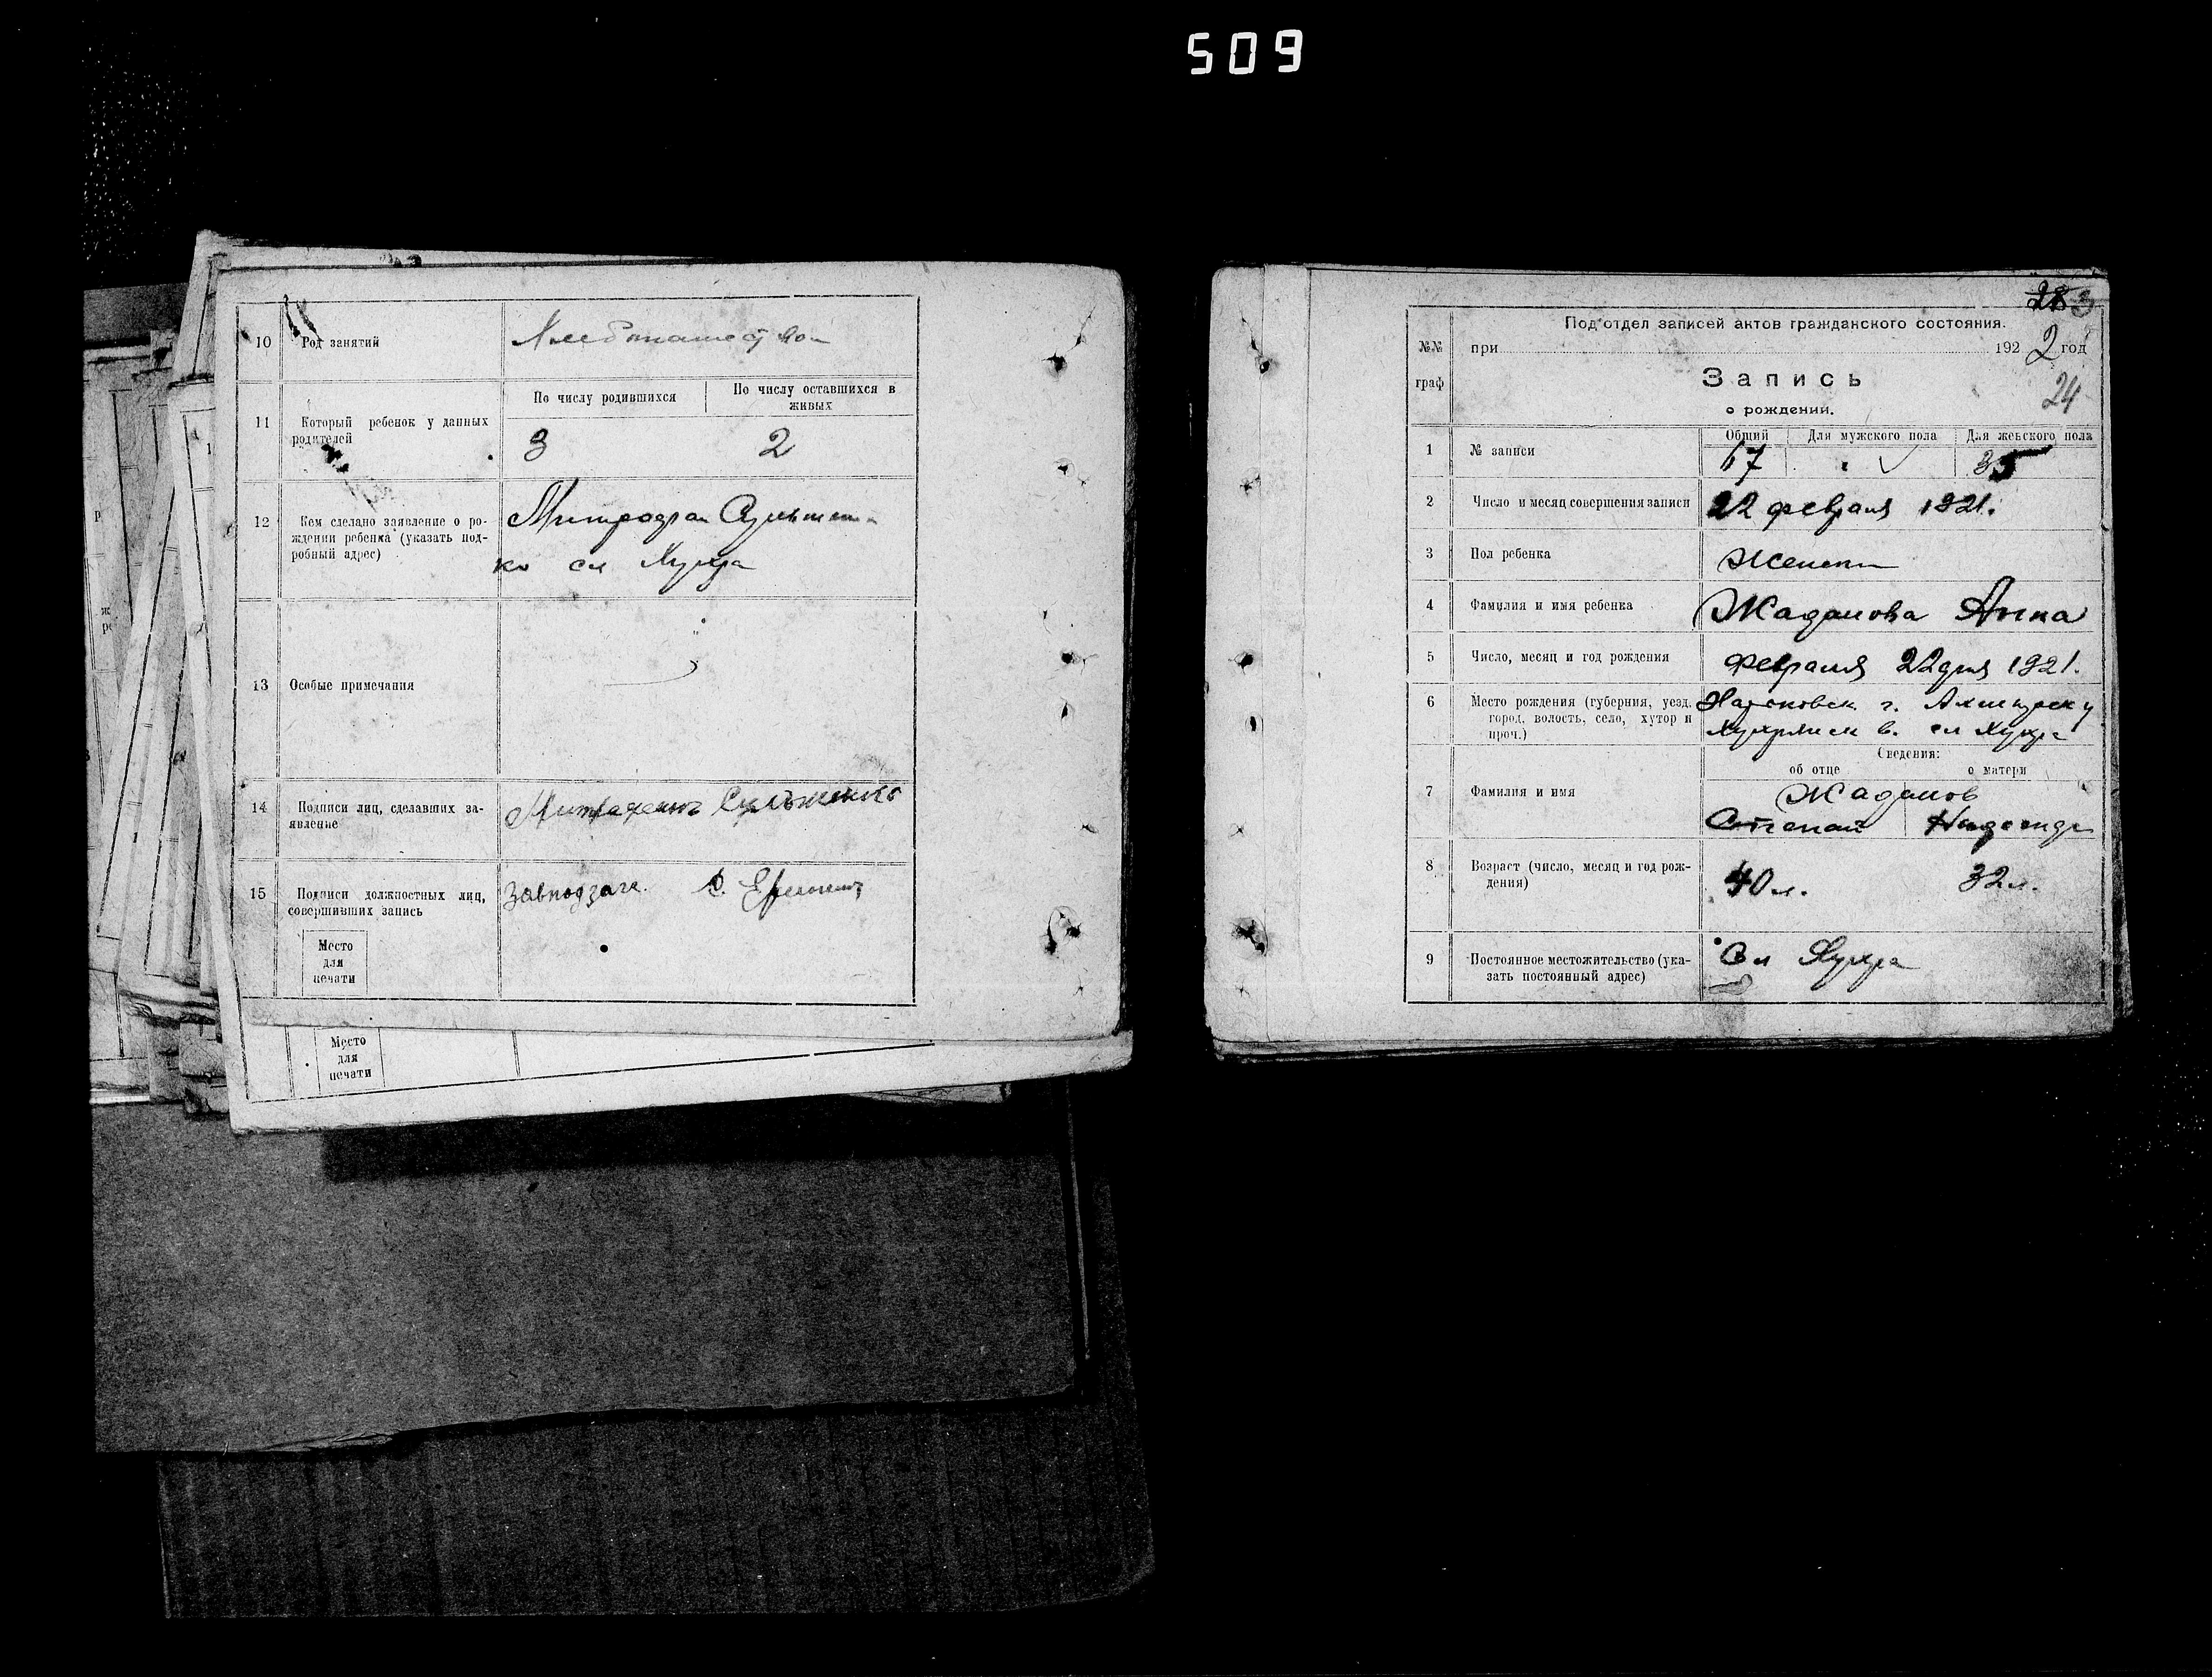 509
10 Род занятий
Хлебопашество
11 Который ребенок у данных
родителей
По числу родившихся
По числу оставшихся в
живых
3 2
12 Кем сделано заявление о ро-
ждении ребенка (указать под-
робный адрес)
Митрофан
ко сл Хухра
13 Особые примечания
14 Подписи лиц, сделавших за-
явление
15 Подписи должностных лиц,
совершивших запись
Завподзагс.
Место
для
печати
Место
для
печати
28 3
Под'отдел записей актов гражданского состояния.
№№
граф
при 192 2 год
Запись
24
о рождении.
1 № записи
Общий Для мужского пола Для женского пола
67 35
2 Число и месяц совершения записи 22 февраля 1921.
3 Пол ребенка Женски
4 Фамилия и имя ребенка Жаданова Анна
5 Число, месяц и год рождения февраля 22 дня 1921.
6 Место рождения (губерния, уезд,
город, волость, село, хутор и
проч.)
г. Ахтырск у
в. сл Хухра
Сведения:
об отце о матери
7 Фамилия и имя
Жаданов
Степан
8 Возраст (число, месяц и год рож-
дения)
40 л. 32 л.
9 Постоянное местожительство (ука-
зать постоянный адрес)
Сл Хухра